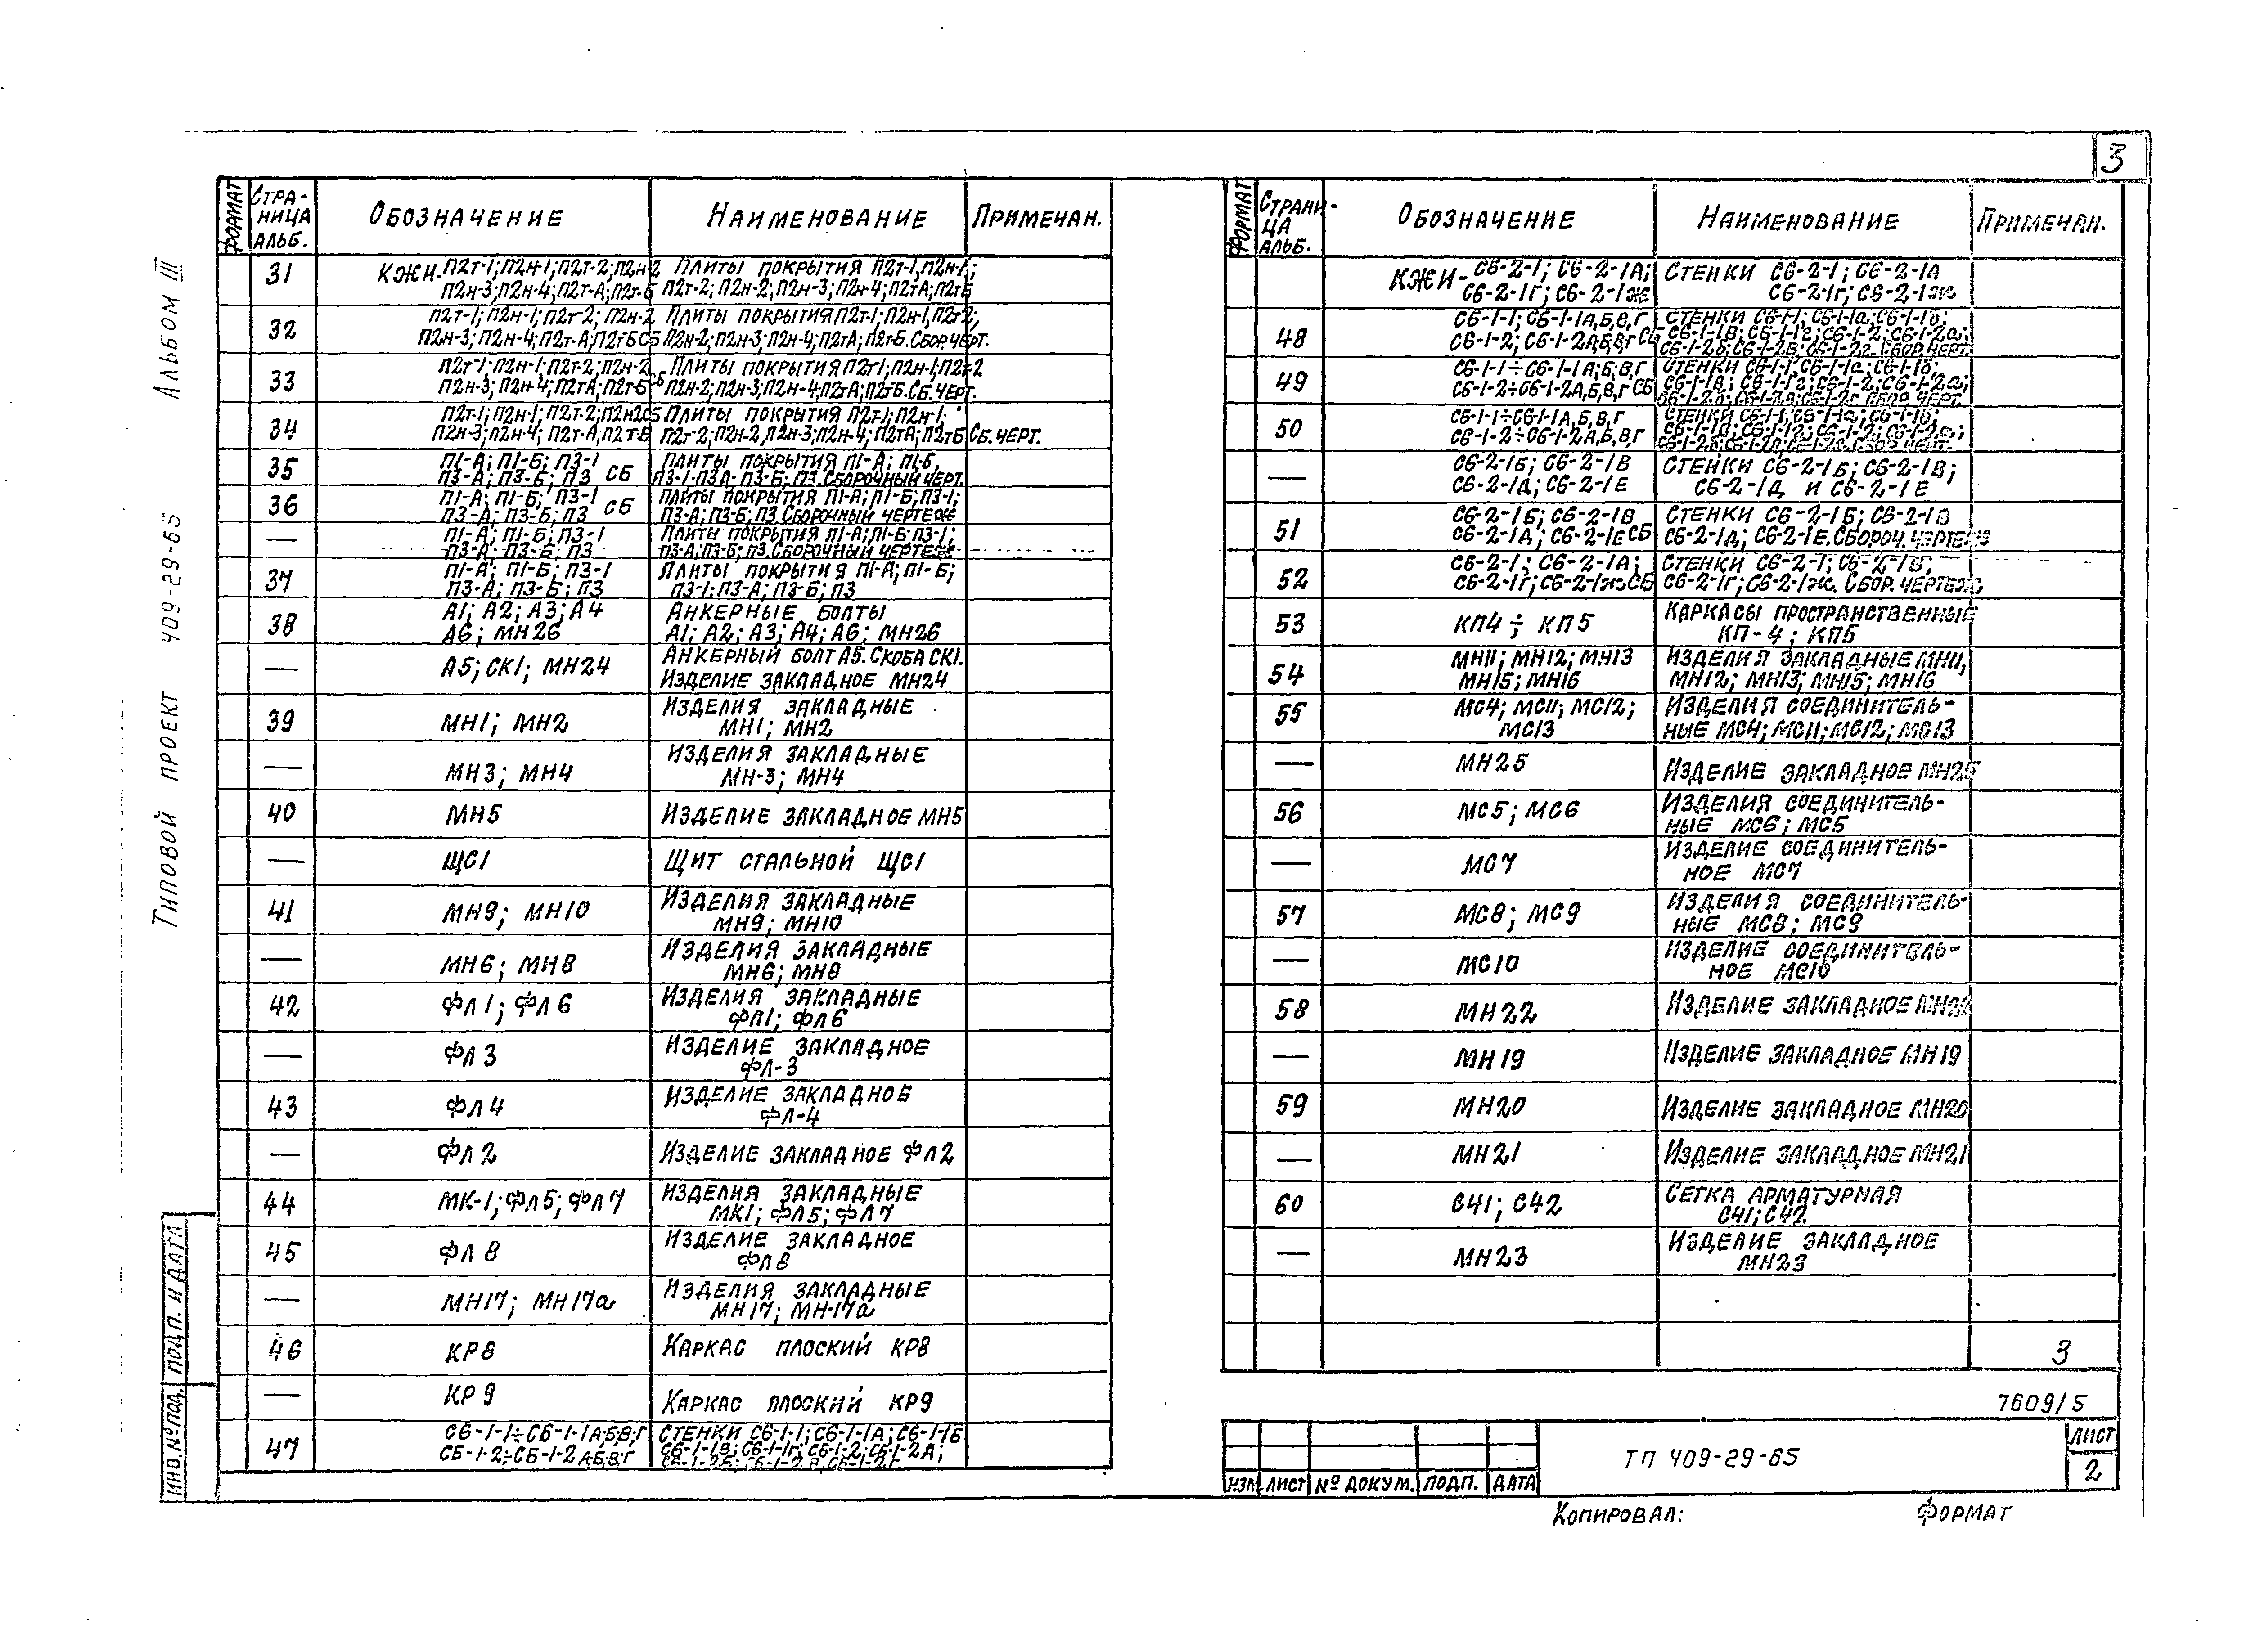 3
ФОРМАТ
СТРА-
НИЦА
АЛЬБ.
ОБОЗНАЧЕНИЕ
НАИМЕНОВАНИЕ
ПРИМЕЧАН.
31
КЖИ-П2т-1;П2н-1;П2т-2;П2н-2
П2н-3;П2н-4;П2т-А;П2т-Б
ПЛИТЫ ПОКРЫТИЯ П2т-1,П2н-1;
П2т-2; П2н-2;П2н-3;П2н-4;П2тА;П2тБ
32
П2т-1;П2н-1;П2т-2; П2н-2
П2н-3;П2н-4;П2т-А;П2тБ СБ
ПЛИТЫ ПОКРЫТИЯ П2т-1;П2н-1,П2т-2;
П2н-2;П2н-3;П2н-4;П2тА;П2т-Б. СБОР.ЧЕРТ.
33
П2т-1;П2н-1;П2т-2;П2н-2
П2н-3; П2н-4;П2тА;П2т-Б СБ
ПЛИТЫ ПОКРЫТИЯ П2т-1;П2н-1;П2т-2
П2н-2;П2н-3;П2н-4;П2тА;П2тБ.СБ.ЧЕРТ.
34
П2т-1;П2н-1;П2т-2;П2н2СБ
П2н-3;П2н-4; П2т-А;П2т-Б
ПЛИТЫ ПОКРЫТИЯ П2т-1;П2н-1;
П2т-2;П2н-2,П2н-3;П2н-4; П2тА;П2тБ СБ.ЧЕРТ.
35
П1-А; П1-Б; П3-1
П3-А; П3-Б; П3 СБ
ПЛИТЫ ПОКРЫТИЯ П1-А; П1-Б,
П3-1;П3А; П3-Б; П3.СБОРОЧНЫЙ ЧЕРТ.
36
П1-А; П1-Б; П3-1
П3-А; П3-Б; П3 СБ
ПЛИТЫ ПОКРЫТИЯ П1-А; П1-Б;П3-1;
П3-А; П3-Б; П3.СБОРОЧНЫЙ ЧЕРТЕЖ
—
П1-А; П1-Б; П3-1
П3-А; П3-Б; П3
ПЛИТЫ ПОКРЫТИЯ П1-А;П1-Б П3-1;
П3-А;П3-Б; П3.СБОРОЧНЫЙ ЧЕРТЕЖ
37
П1-А; П1-Б; П3-1
П3-А; П3-Б; П3
ПЛИТЫ ПОКРЫТИЯ П1-А; П1-Б;
П3-1; П3-А; П3-Б; П3
38
А1; А2; А3; А4
А6; МН26
АНКЕРНЫЕ БОЛТЫ
А1; А2; А3; А4; А6; МН26
—
А5; СК1; МН24
АНКЕРНЫЙ БОЛТ А5. СКОБА СК1.
ИЗДЕЛИЕ ЗАКЛАДНОЕ МН24
39
МН1; МН2
ИЗДЕЛИЯ ЗАКЛАДНЫЕ
МН1; МН2
—
МН3; МН4
ИЗДЕЛИЯ ЗАКЛАДНЫЕ
МН-3; МН4
40
МН5
ИЗДЕЛИЕ ЗАКЛАДНОЕ МН5
—
ЩС1
ЩИТ СТАЛЬНОЙ ЩС1
41
МН9; МН10
ИЗДЕЛИЯ ЗАКЛАДНЫЕ
МН9; МН10
—
МН6; МН8
ИЗДЕЛИЯ ЗАКЛАДНЫЕ
МН6; МН8
42
ФЛ1; ФЛ6
ИЗДЕЛИЯ ЗАКЛАДНЫЕ
ФЛ1; ФЛ6
—
ФЛ3
ИЗДЕЛИЕ ЗАКЛАДНОЕ
ФЛ-3
43
ФЛ4
ИЗДЕЛИЕ ЗАКЛАДНОЕ
ФЛ-4
—
ФЛ2
ИЗДЕЛИЕ ЗАКЛАДНОЕ ФЛ2
44
МК-1; ФЛ5; ФЛ7
ИЗДЕЛИЯ ЗАКЛАДНЫЕ
МК1; ФЛ5; ФЛ7
45
ФЛ8
ИЗДЕЛИЕ ЗАКЛАДНОЕ
ФЛ8
—
МН17; МН17а
ИЗДЕЛИЯ ЗАКЛАДНЫЕ
МН17; МН-17а
46
КР8
КАРКАС ПЛОСКИЙ КР8
—
КР9
КАРКАС ПЛОСКИЙ КР9
47
С6-1-1÷СБ-1-1А;Б;В;Г
СБ-1-2÷СБ-1-2А;Б;В;Г
СТЕНКИ С6-1-1; С6-1-1А; С6-1-1Б
С6-1-1В; С6-1-1г; С6-1-2; С6-1-2А;
С6-1-2Б; С6-1-2.В; С6-1-2.Г
ФОРМАТ
СТРАНИ-
ЦА
АЛЬБ.
ОБОЗНАЧЕНИЕ
НАИМЕНОВАНИЕ
ПРИМЕЧАН.
КЖИ-С6-2-1; С6-2-1А;
С6-2-1Г; С6-2-1Ж
СТЕНКИ С6-2-1; С6-2-1А
С6-2-1г; С6-2-1ж
48
С6-1-1; С6-1-1А,Б,В,Г
С6-1-2; С6-1-2А,Б,В,Г СБ
СТЕНКИ С6-1-1; С6-1-1а; С6-1-1б;
С6-1-1В; С6-1-1г; С6-1-2; С6-1-2а;
С6-1-2б;С6-1-2В; С6-1-2г. СБОР.ЧЕРТ.
49
С6-1-1÷С6-1-1А;Б;В,Г
С6-1-2÷С6-1-2А,Б,В,Г СБ
СТЕНКИ С6-1-1; С6-1-1а; С6-1-1б;
С6-1-1В; С6-1-1г; С6-1-2; С6-1-2а;
50
С6-1-1÷С6-1-1А,Б,В,Г
С6-1-2÷С6-1-2А,Б,В,Г
СТЕНКИ С6-1-1; С6-1-1а; С6-1-1б;
С6-1-1В; С6-1-1г; С6-1-2; С6-1-2а;
—
С6-2-1Б; С6-2-1В
С6-2-1Д; С6-2-1Е
СТЕНКИ С6-2-1Б; С6-2-1В;
С6-2-1Д И С6-2-1Е
51
С6-2-1Б; С6-2-1В
С6-2-1Д; С6-2-1Е СБ
СТЕНКИ С6-2-1Б; С6-2-1В
С6-2-1Д; С6-2-1Е. СБОРОЧ. ЧЕРТЕЖ
52
С6-2-1; С6-2-1А;
С6-2-1Г; С6-2-1Ж СБ
СТЕНКИ С6-2-1;
С6-2-1Г; С6-2-1Ж. СБОР. ЧЕРТЕЖ
53
КП4 ÷ КП5
КАРКАСЫ ПРОСТРАНСТВЕННЫЕ
КП-4; КП5
54
МН11; МН12; МН13
МН15; МН16
ИЗДЕЛИЯ ЗАКЛАДНЫЕ МН11,
МН12; МН13; МН15; МН16
55
МС4; МС11; МС12;
МС13
ИЗДЕЛИЯ СОЕДИНИТЕЛЬ-
НЫЕ МС4; МС11; МС12; МС13
—
МН25
ИЗДЕЛИЕ ЗАКЛАДНОЕ МН25
56
МС5; МС6
ИЗДЕЛИЯ СОЕДИНИТЕЛЬ-
НЫЕ МС6; МС5
—
МС7
ИЗДЕЛИЕ СОЕДИНИТЕЛЬ-
НОЕ МС7
57
МС8; МС9
ИЗДЕЛИЯ СОЕДИНИТЕЛЬ-
НЫЕ МС8; МС9
—
МС10
ИЗДЕЛИЕ СОЕДИНИТЕЛЬ-
НОЕ МС10
58
МН22
ИЗДЕЛИЕ ЗАКЛАДНОЕ МН22
—
МН19
ИЗДЕЛИЕ ЗАКЛАДНОЕ МН19
59
МН20
ИЗДЕЛИЕ ЗАКЛАДНОЕ МН20
—
МН21
ИЗДЕЛИЕ ЗАКЛАДНОЕ МН21
60
С41; С42
СЕТКА АРМАТУРНАЯ
С41; С42
—
МН23
ИЗДЕЛИЕ ЗАКЛАДНОЕ
МН23
3
7609/5
ИЗМ ЛИСТ № ДОКУМ. ПОДП. ДАТА
ТП 409-29-65
ЛИСТ
2
КОПИРОВАЛ:
ФОРМАТ
ТИПОВОЙ ПРОЕКТ 409-29-65 АЛЬБОМ III
ИНВ.№ПОД. ПОДП. И ДАТА